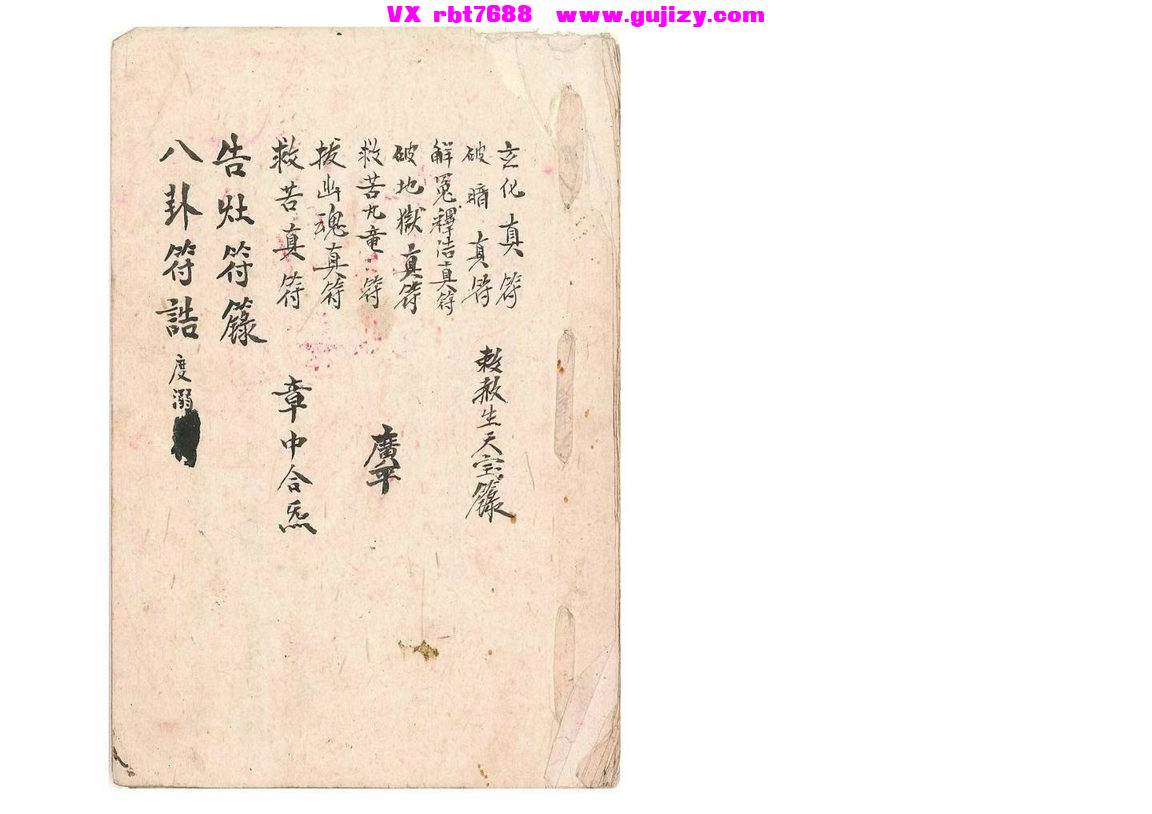 VX rbt7688 www.gujizy.com
玄化真符
破暗真符
敕赦生天宝籙
解冤釋洁真符
破地獄真符
救苦九竜符
廣平
拔幽魂真符
救苦真符
章中合炁
告灶符籙
八卦符誥
度溺